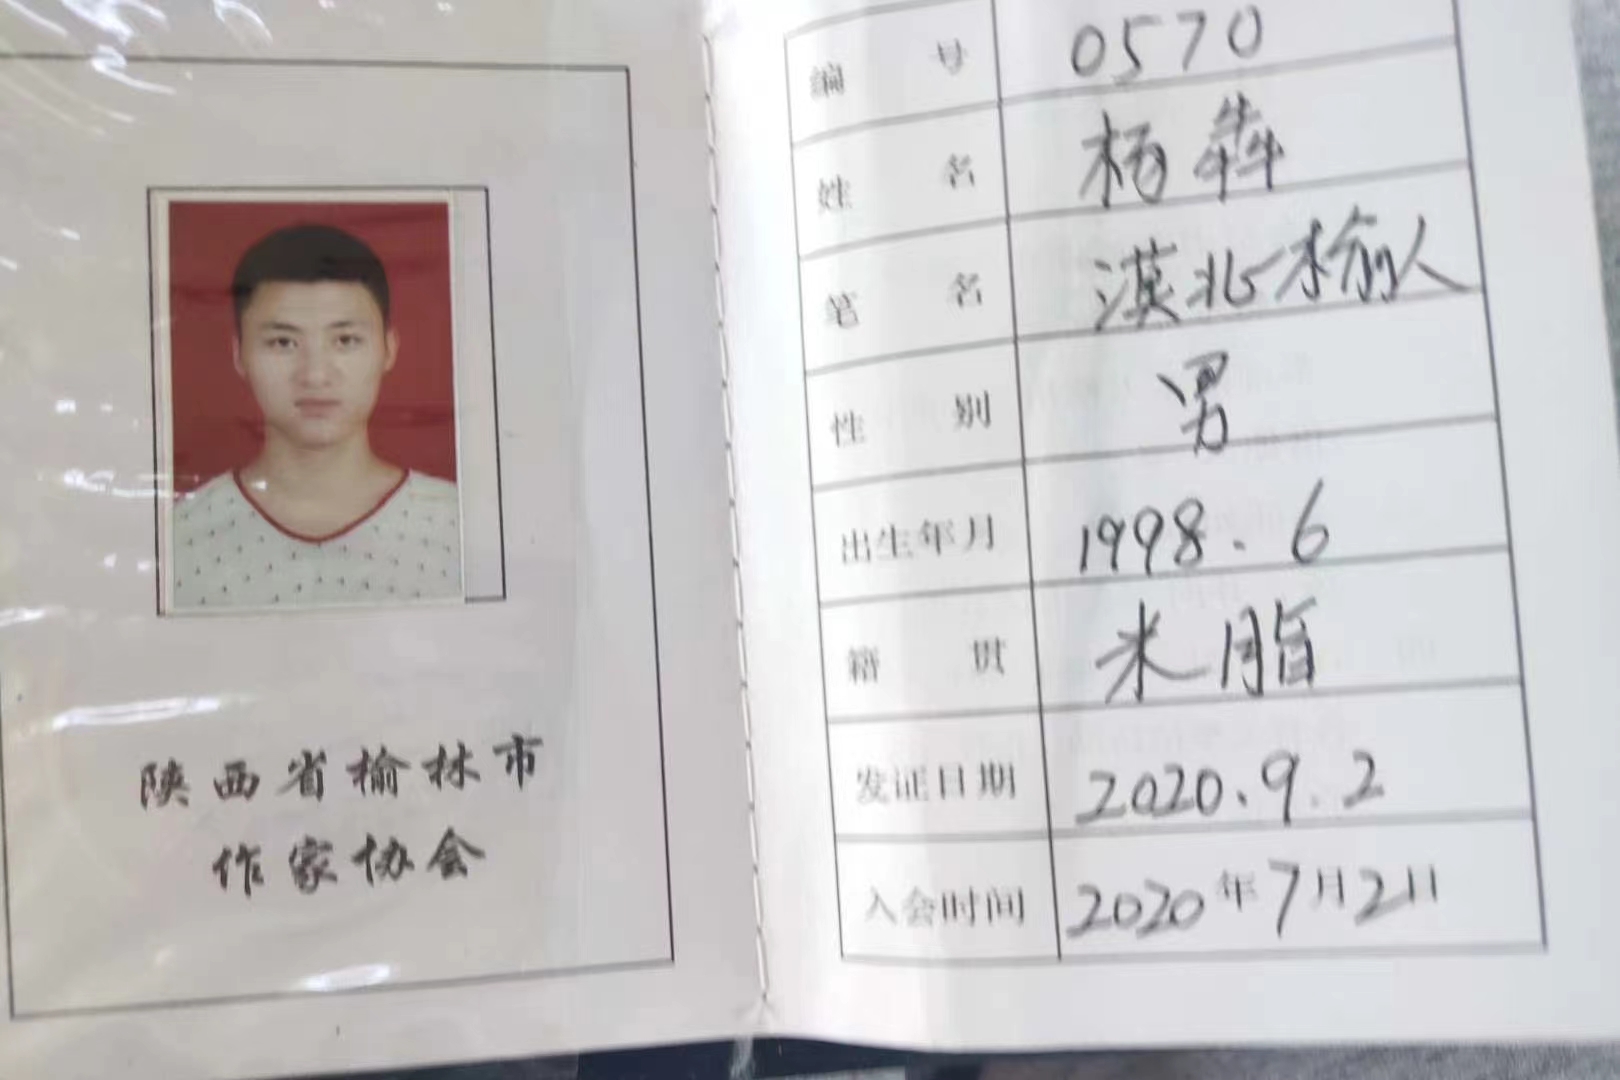 陕西省榆林市
作家协会
编号 0570
姓名 杨犇
笔名 漠北榆人
性别 男
出生年月 1998.6
籍贯 米脂
发证日期 2020.9.2
入会时间 2020年7月2日